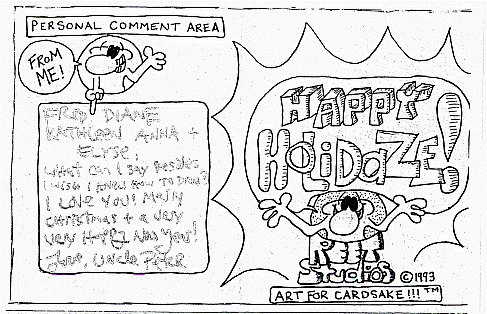 PERSONAL COMMENT AREA
FROM
ME!
FRED DIANE
KATHLEEN ANNA +
ELYSE,
What can I say besides
I wish I knew how to draw?
I Love you! Merry
Christmas + a very
very Happy New Year!
Love, Uncle Peter
HAPPY
HOLIDAZE!
Studios ©1993
ART FOR CARDSAKE!!! ™